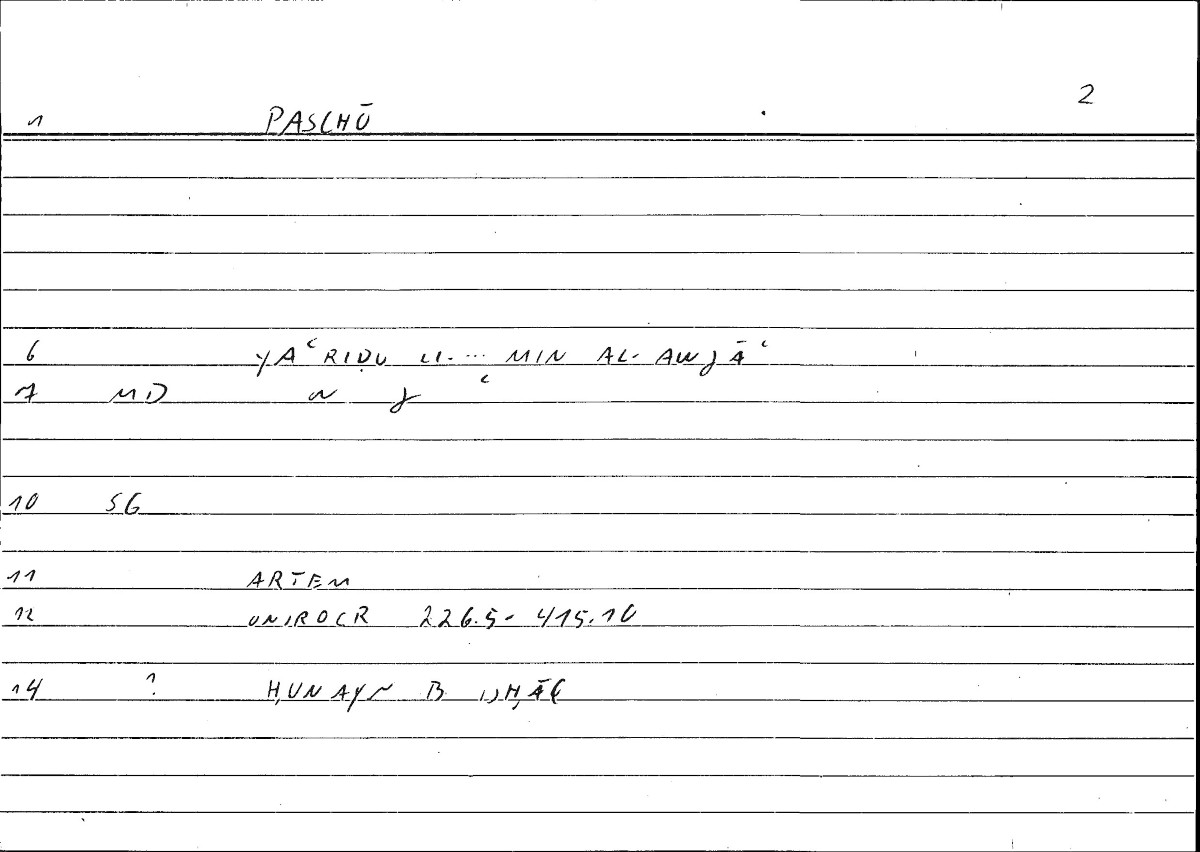 2
1 PASCHŌ
6 YAʿRIḌU LI-... MIN AL-AWJĀʿ
7 MD W J ʿ
10 SG
11 ARTEM
12 ONIROCR 226.5-415.10
14 ? ḤUNAYN B ISḤĀQ